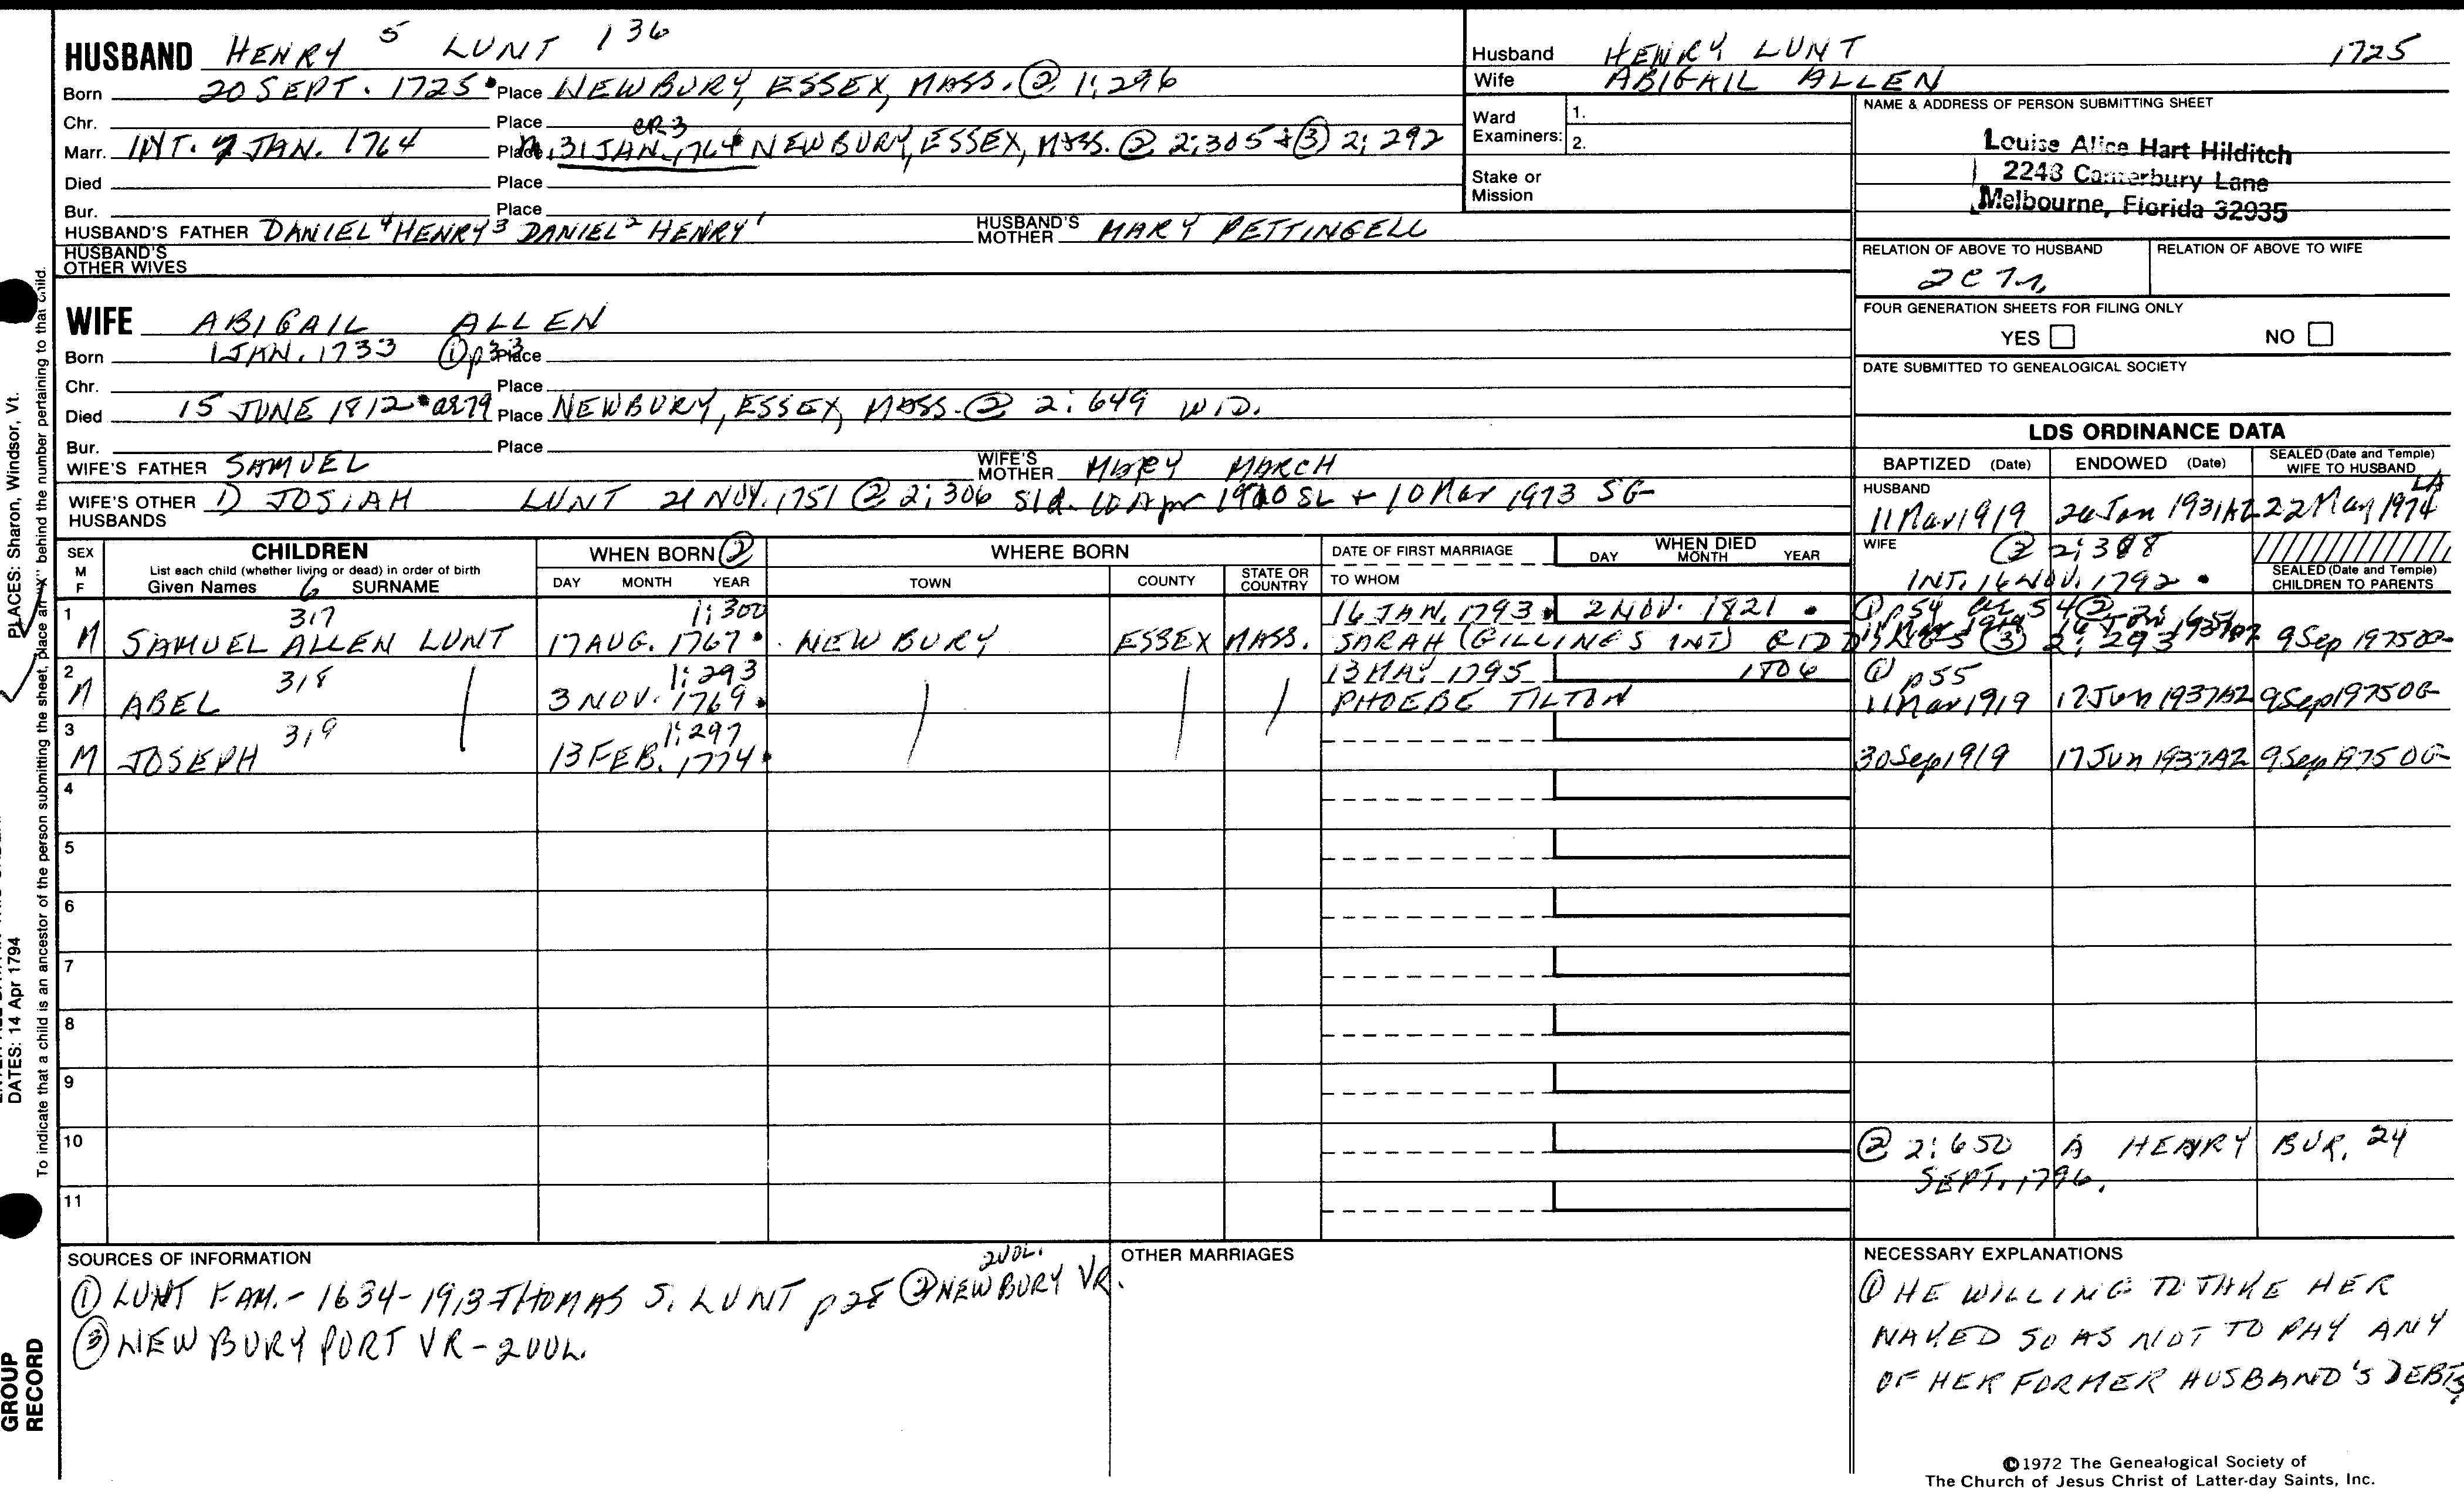 HUSBAND HENRY 5 LUNT 136
Born 20 SEPT. 1725 Place NEWBURY, ESSEX, MASS. ② 1:296
Chr. Place CR-3
Marr. INT. 7 JAN. 1764 Place m. 31 JAN. 1764 NEWBURY, ESSEX, MASS. ② 2:305 + ③ 2:292
Died Place
Bur. Place
HUSBAND'S FATHER DANIEL 4 HENRY 3 DANIEL 2 HENRY 1 HUSBAND'S MOTHER MARY PETTINGELL
HUSBAND'S OTHER WIVES
WIFE ABIGAIL ALLEN
Born 1 JAN. 1733 ① p33 Place
Chr. Place
Died 15 JUNE 1812 ae 79 Place NEWBURY, ESSEX, MASS. ② 2:649 WID.
Bur. Place
WIFE'S FATHER SAMUEL WIFE'S MOTHER MARY MARCH
WIFE'S OTHER HUSBANDS 1) JOSIAH LUNT 21 NOV. 1751 ② 2:306 Sld. 10 Apr SL + 10 Mar 1973 SG
Husband HENRY LUNT 1725
Wife ABIGAIL ALLEN
Ward Examiners: 1.
2.
Stake or Mission
NAME & ADDRESS OF PERSON SUBMITTING SHEET
Louise Alice Hart Hilditch
2248 Canterbury Lane
Melbourne, Florida 32935
RELATION OF ABOVE TO HUSBAND RELATION OF ABOVE TO WIFE
FOUR GENERATION SHEETS FOR FILING ONLY
YES NO
DATE SUBMITTED TO GENEALOGICAL SOCIETY
LDS ORDINANCE DATA
BAPTIZED (Date) ENDOWED (Date) SEALED (Date and Temple) WIFE TO HUSBAND
HUSBAND LA
11 Mar 1919 26 Jan 1931 AZ 22 May 1974
WIFE ② 2:308
INT. 16 NOV. 1792
SEALED (Date and Temple) CHILDREN TO PARENTS
SEX M F CHILDREN WHEN BORN ② WHERE BORN DATE OF FIRST MARRIAGE WHEN DIED
List each child (whether living or dead) in order of birth
Given Names 6 SURNAME DAY MONTH YEAR TOWN COUNTY STATE OR COUNTRY TO WHOM DAY MONTH YEAR
1 317 1:300 16 JAN. 1793 2 NOV. 1821 ① p54
M SAMUEL ALLEN LUNT 17 AUG. 1767 NEWBURY ESSEX MASS. SARAH (GILLINGS INT) ③ 2:293 9 Sep 1975 OG
2 318 1:293 13 MAY 1795 1806 ① p55
M ABEL 3 NOV. 1769 PHOEBE TILTON 11 Mar 1919 17 Jun 1937 AZ 9 Sep 1975 OG
3 319 1:297
M JOSEPH 13 FEB. 1774 30 Sep 1919 17 Jun 1937 AZ 9 Sep 1975 OG
4
5
6
7
8
9
10 ② 2:650 A HENRY BUR. 24
SEPT. 1796.
11
SOURCES OF INFORMATION
① LUNT FAM. - 1634-1913 THOMAS S. LUNT p 28 ② NEWBURY VR. 2 VOL.
③ NEWBURYPORT VR - 2 VOL.
OTHER MARRIAGES
NECESSARY EXPLANATIONS
① HE WILLING TO TAKE HER
NAKED SO AS NOT TO PAY ANY
OF HER FORMER HUSBAND'S DEBTS.
©1972 The Genealogical Society of
The Church of Jesus Christ of Latter-day Saints, Inc.
PLACES: Sharon, Windsor, Vt.
DATES: 14 Apr 1794
To indicate that a child is an ancestor of the person submitting the sheet, place an "X" behind the number pertaining to that child.
GROUP
RECORD